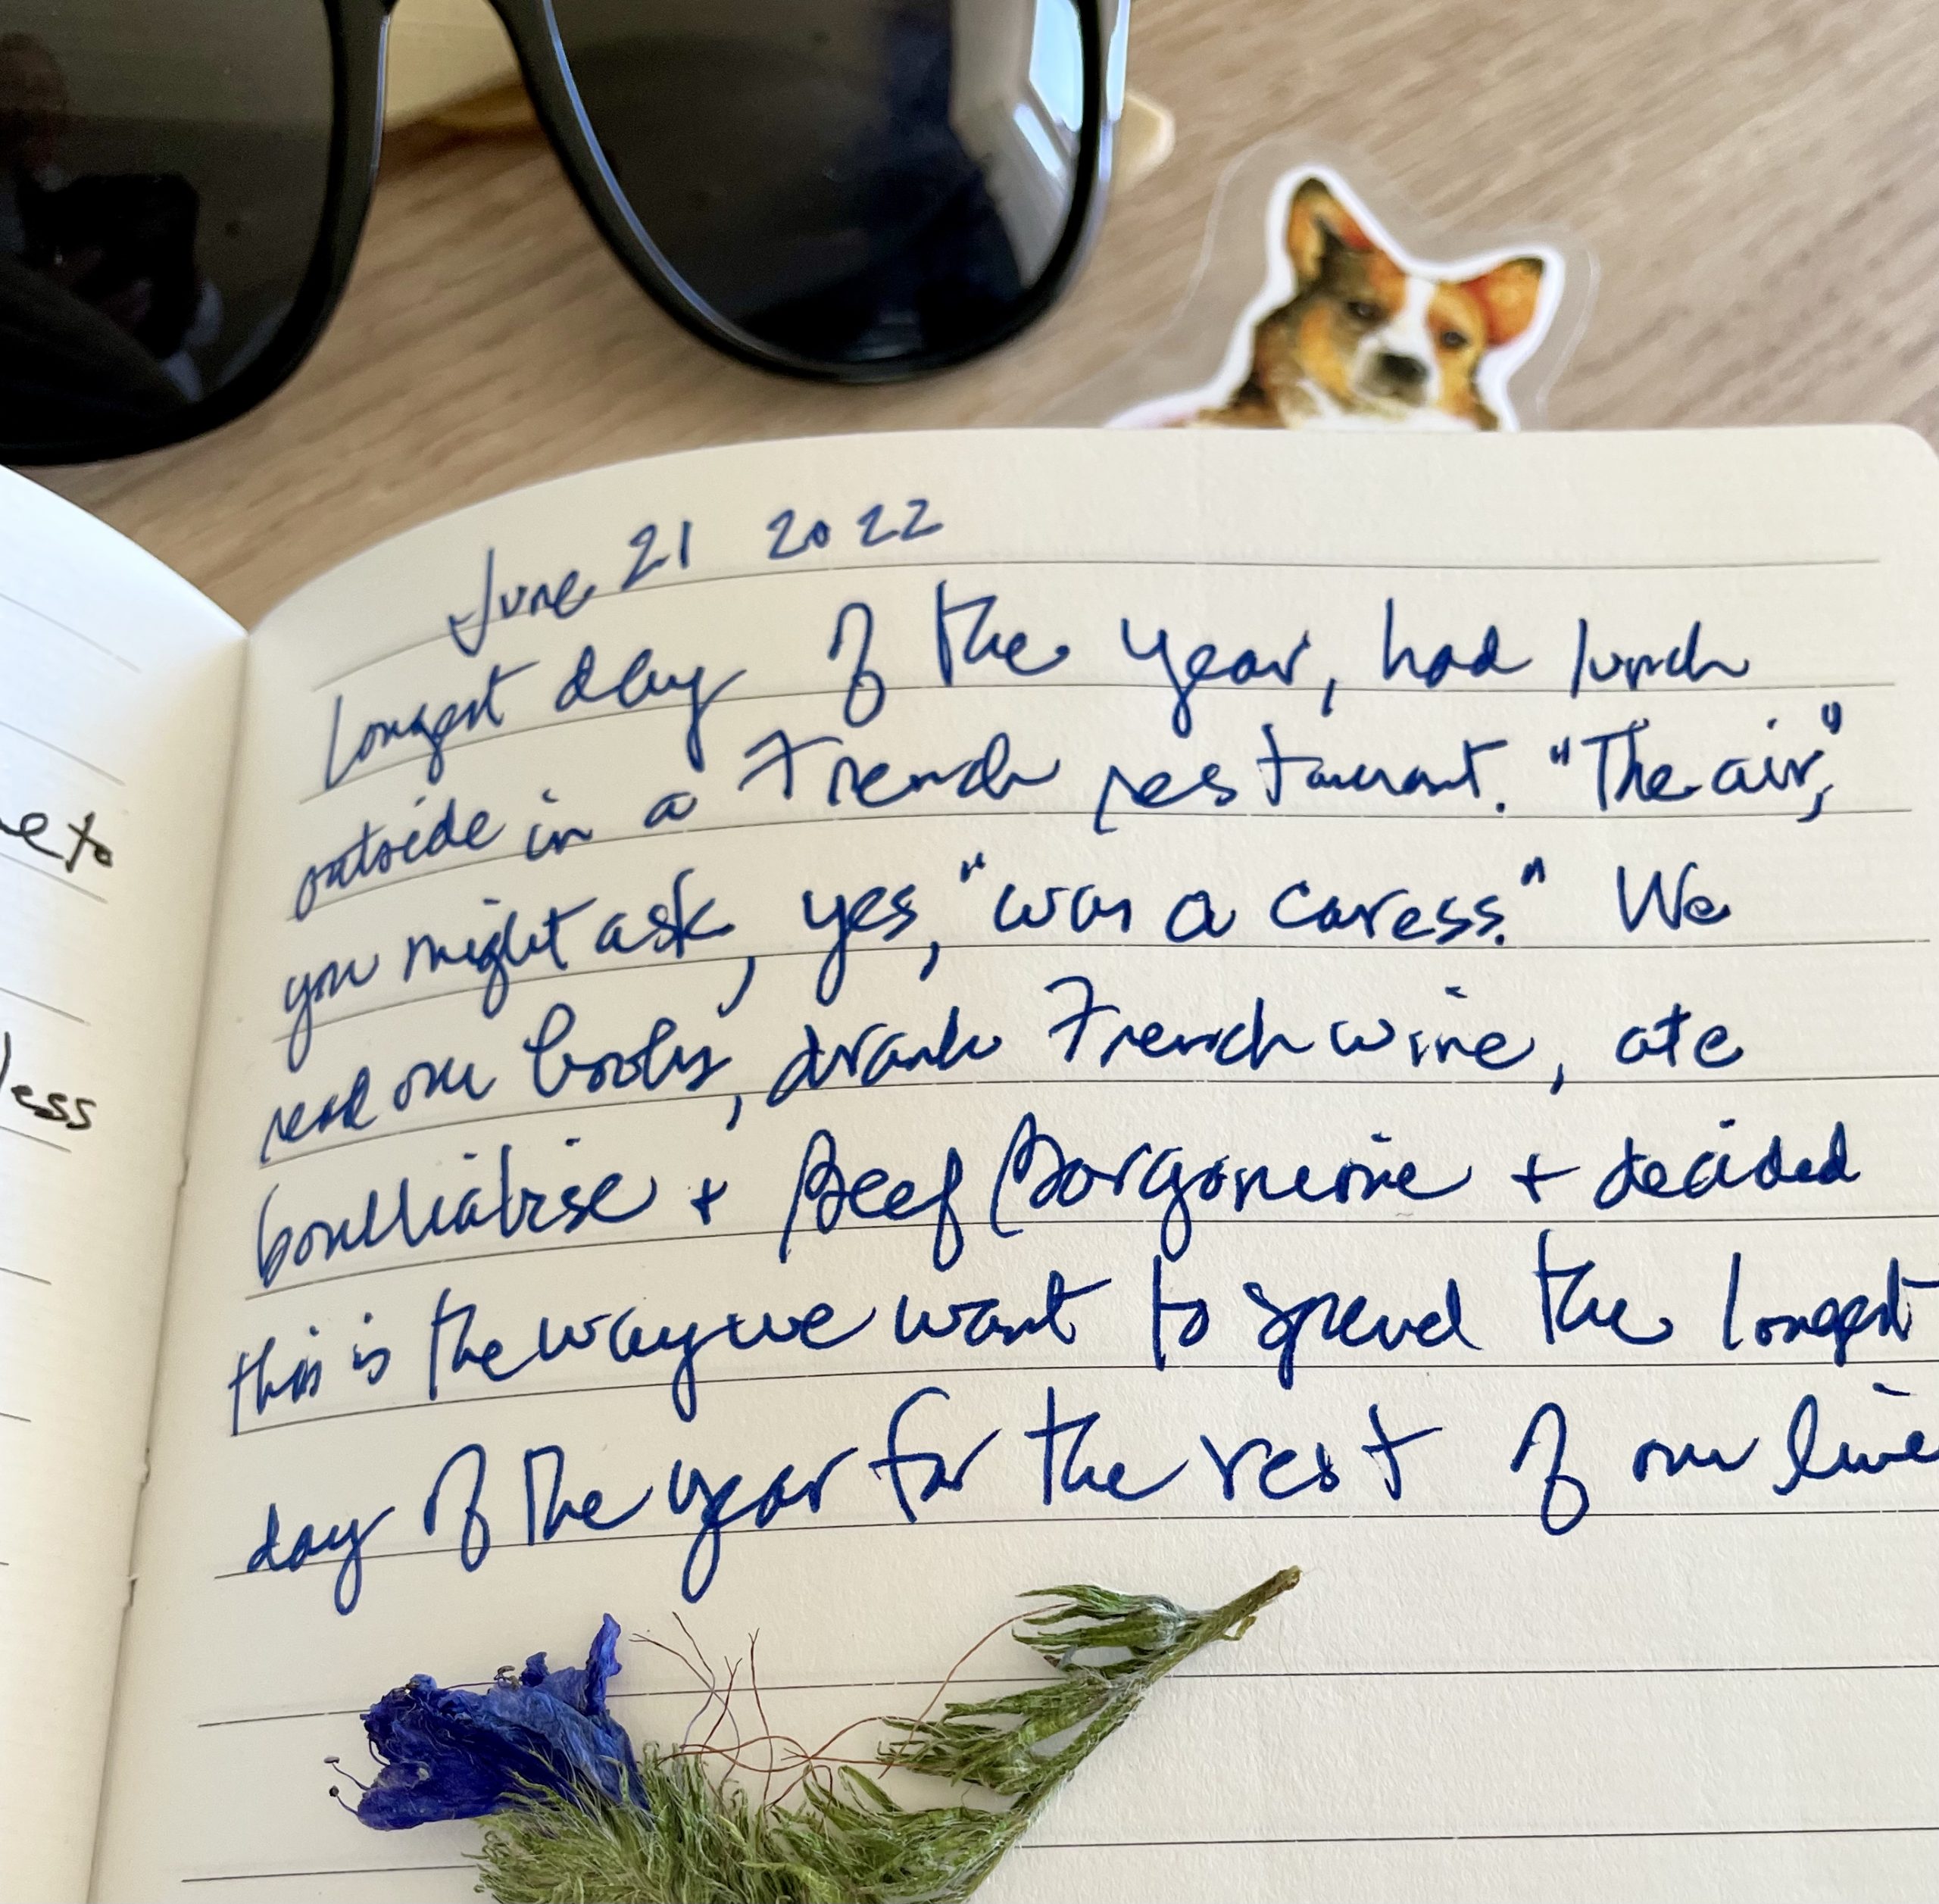 e to
less
June 21 2022
longest day of the year, had lunch
outside in a French restaurant. "The air,"
you might ask, yes, "was a caress." We
read our books, drank French wine, ate
+ Beef Borgoneine + decided
this is the way we want to spend the longest
day of the year for the rest of our live